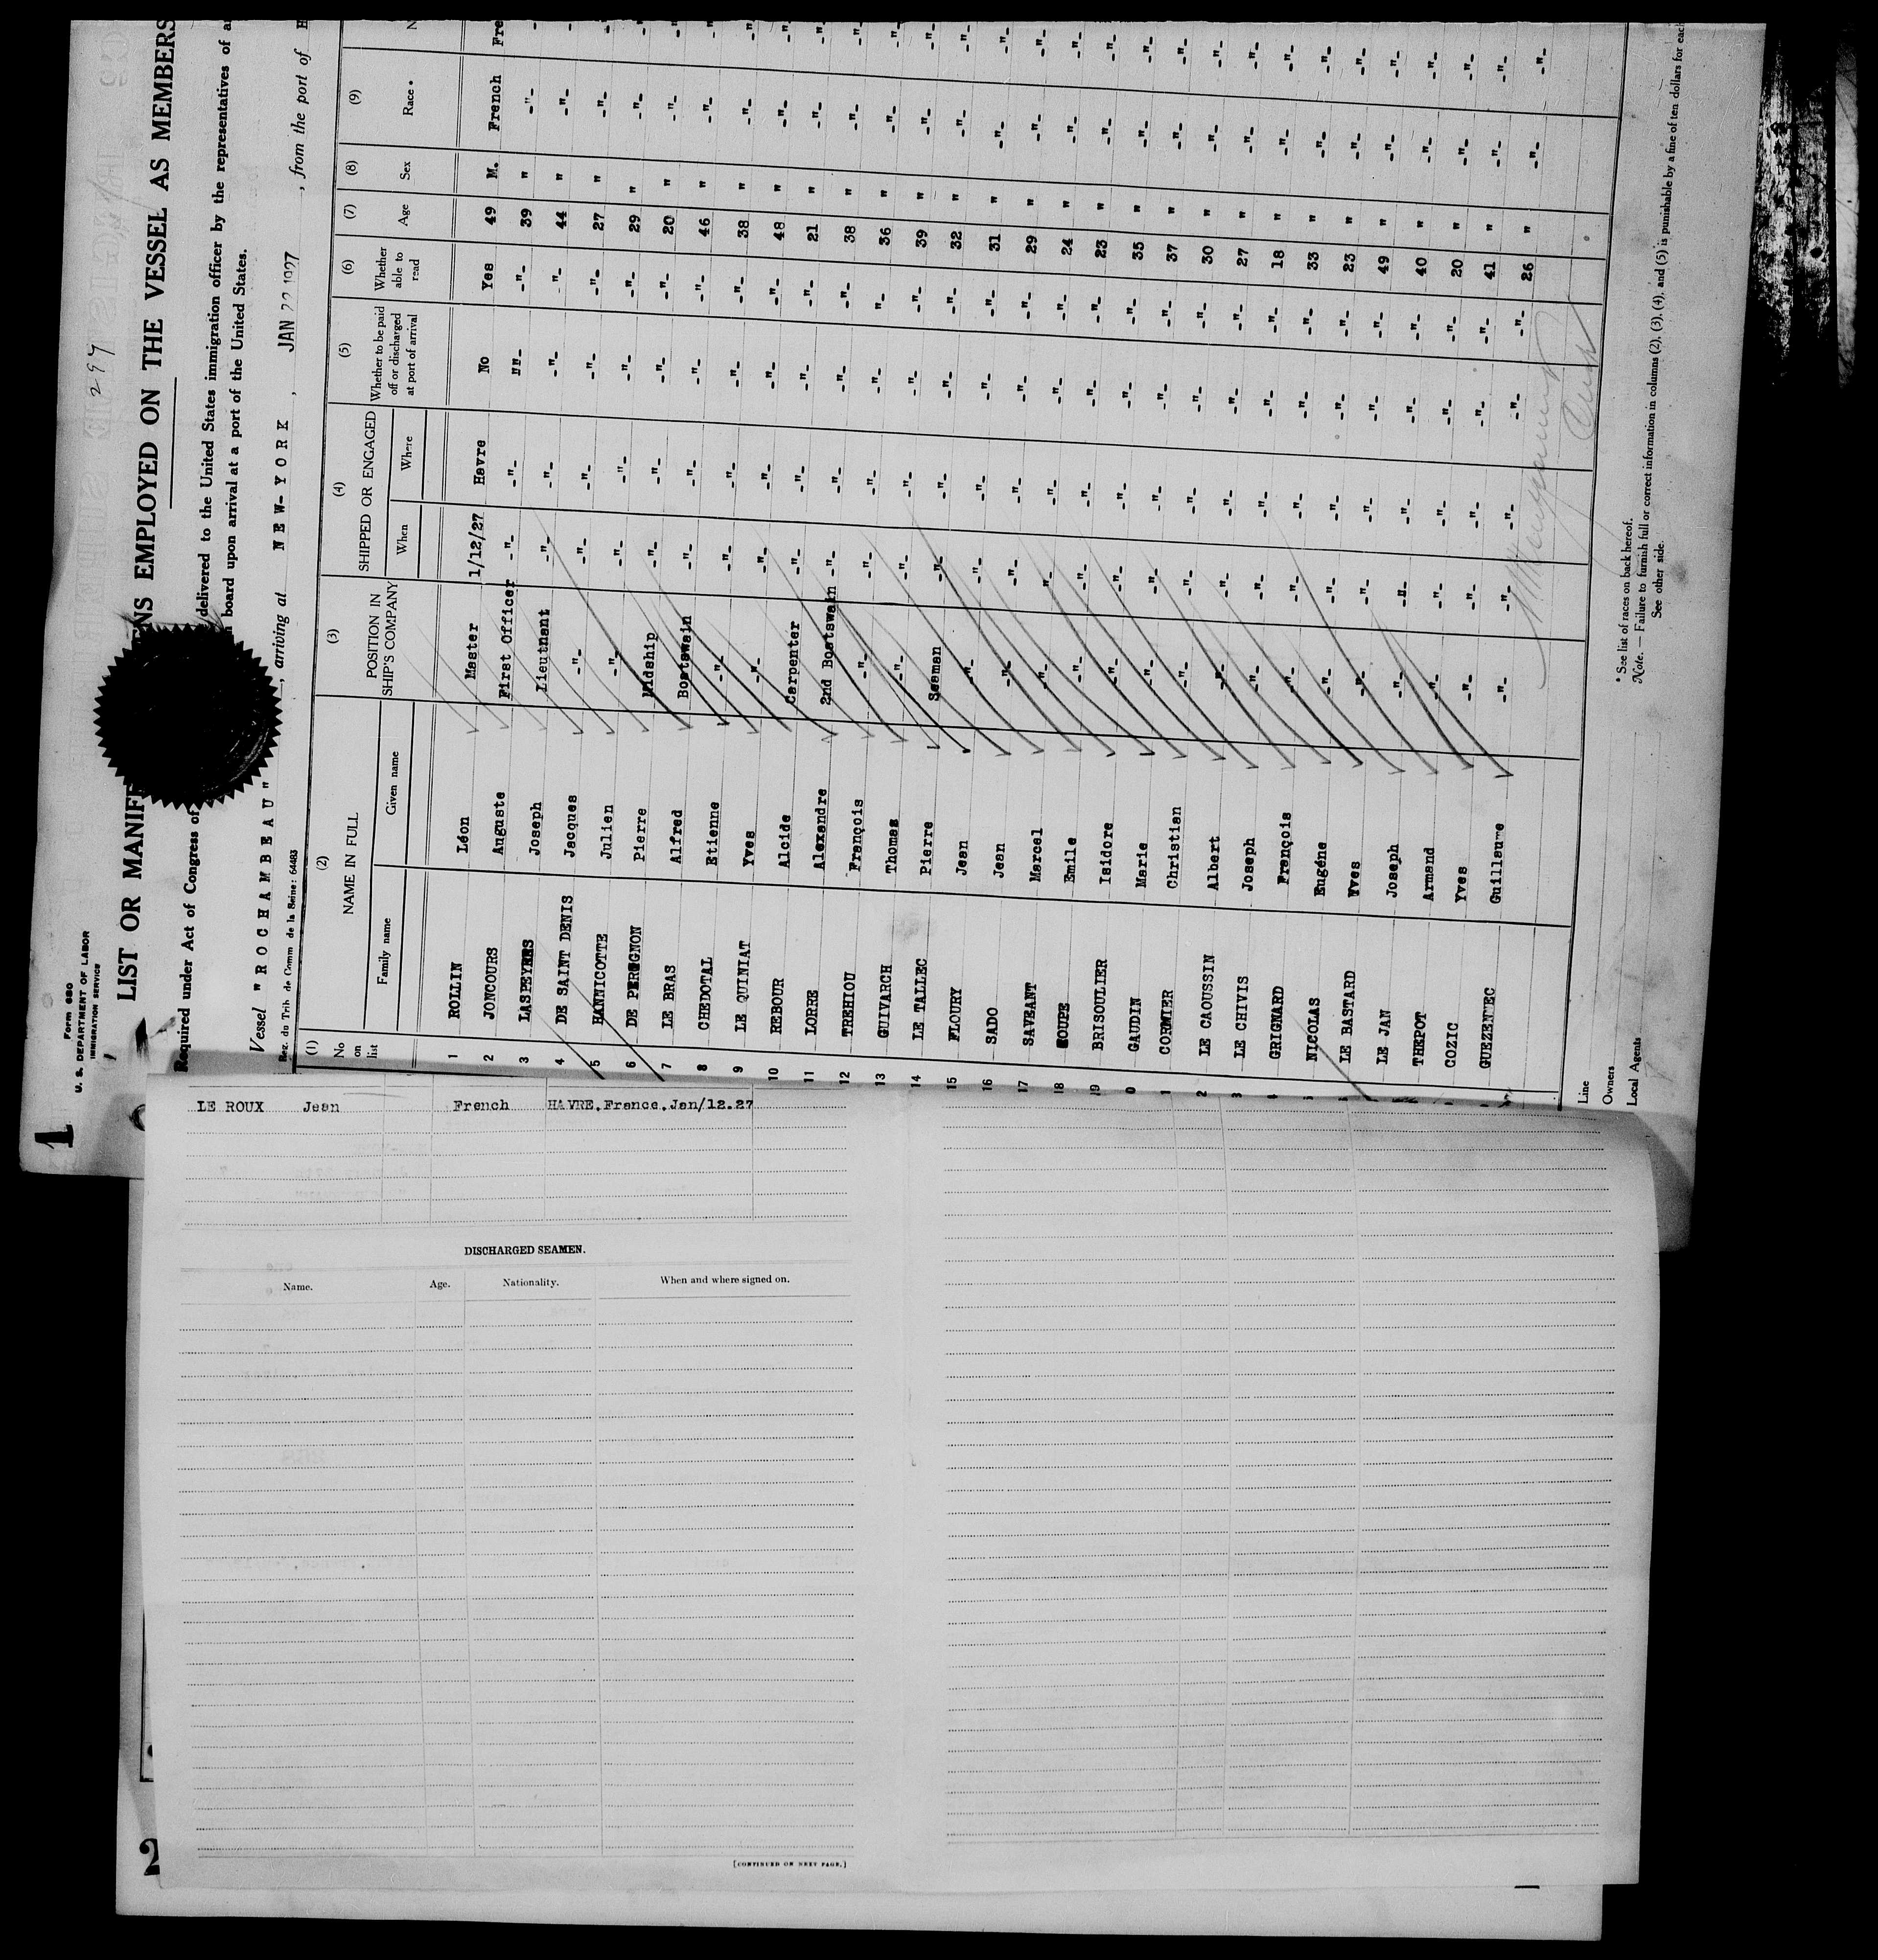 Form 680
U. S. DEPARTMENT OF LABOR
IMMIGRATION SERVICE
297
1
LIST OR MANIF ENS EMPLOYED ON THE VESSEL AS MEMBERS
Required under Act of Congress of delivered to the United States immigration officer by the representatives of
board upon arrival at a port of the United States.
Vessel "ROCHAMBEAU", arriving at NEW-YORK, JAN 22 1927, from the port of
Reg. du Trib. de Comm de la Seine: 64483
(1) No on list (2) NAME IN FULL Family name Given name (3) POSITION IN SHIP'S COMPANY (4) SHIPPED OR ENGAGED When Where (5) Whether to be paid off or discharged at port of arrival (6) Whether able to read (7) Age (8) Sex (9) Race*
1 ROLLIN Léon Master 1/12/27 Havre No Yes 49 M. French Fre
2 JONCOURS Auguste First Officer -"- -"- ""- -"- 39 " -"-
3 LASPEYRES Joseph Lieutnant -"- -"- -"- -"- 44 " -"-
4 DE SAINT DENIS Jacques -"- -"- -"- -"- -"- 27 " -"-
5 HANNICOTTE Julien -"- -"- -"- -"- -"- 29 " -"-
6 DE PERIGNON Pierre Midship -"- -"- -"- -"- 20 " -"-
7 LE BRAS Alfred Boatswain -"- -"- -"- -"- 46 " -"-
8 CHEDOTAL Etienne -"- -"- -"- -"- -"- 38 " -"-
9 LE QUINIAT Yves -"- -"- -"- -"- -"- 48 " -"-
10 REBOUR Alcide Carpenter -"- -"- -"- -"- 21 " -"-
11 LORRE Alexandre 2nd Boatswain -"- -"- -"- -"- 38 " -"-
12 TREHIOU François -"- -"- -"- -"- "- 36 " -"-
13 GUIVARCH Thomas -"- -"- -"- -"- -"- 39 " -"-
14 LE TALLEC Pierre Seaman -"- -"- -"- -"- 32 " -"-
15 FLOURY Jean -"- -"- -"- -"- -"- 31 " -"-
16 SADO Jean -"- -"- -"- -"- -"- 29 " -"-
17 SAVEANT Marcel -"- -"- -"- -"- -"- 24 " -"-
18 COUPE Emile -"- -"- -"- -"- -"- 23 " -"-
19 BRISOULIER Isidore -"- -"- -"- -"- -"- 35 " -"-
0 GAUDIN Marie -"- -"- -"- -"- -"- 37 " -"-
1 CORMIER Christian -"- -"- -"- -"- -"- 30 " -"-
2 LE CAOUSSIN Albert -"- -"- -"- -"- -"- 27 " -"-
3 LE CHIVIS Joseph -"- -"- -"- -"- -"- 18 " -"-
4 GRIGNARD François -"- -"- -"- -"- -"- 33 " -"-
NICOLAS Eugéne -"- -"- -"- -"- -"- 23 " -"-
LE BASTARD Yves -"- -"- -"- -"- -"- 49 " -"-
LE JAN Joseph -"- -"- -"- -"- -"- 40 " -"-
THEPOT Armand -"- -"- -"- -"- -"- 20 " -"-
COZIC Yves -"- -"- -"- -"- -"- 41 " -"-
GUEZENTEC Guillaume -"- -"- -"- -"- -"- 26 " -"-
Line
Owners
Local Agents
* See list of races on back hereof.
Note. — Failure to furnish full or correct information in columns (2), (3), (4), and (5) is punishable by a fine of ten dollars for each
See other side.
LE ROUX Jean French HAVRE.France.Jan/12.27
DISCHARGED SEAMEN.
Name. Age. Nationality. When and where signed on.
[CONTINUED ON NEXT PAGE.]
2